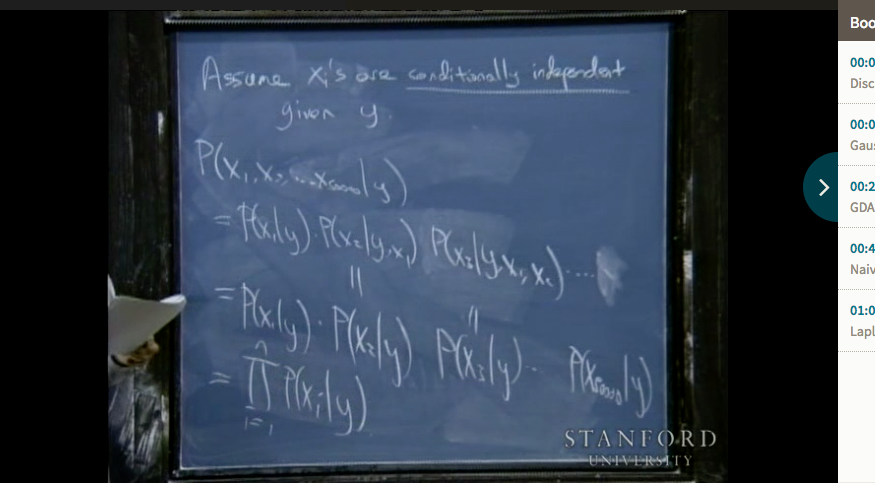 Assume xᵢ's are conditionally independent
given y.
P(x₁, x₂, ... x₅₀₀₀₀|y)
= P(x₁|y) · P(x₂|y, x₁) P(x₃|y, x₁, x₂) ....
= P(x₁|y) · P(x₂|y) P(x₃|y) ·· P(x₅₀₀₀₀|y)
= ∏ᵢ₌₁ⁿ P(xᵢ|y)
STANFORD
UNIVERSITY
Boo
00:0
Disc
00:0
Gau
00:2
GDA
00:4
Naiv
01:0
Lapl